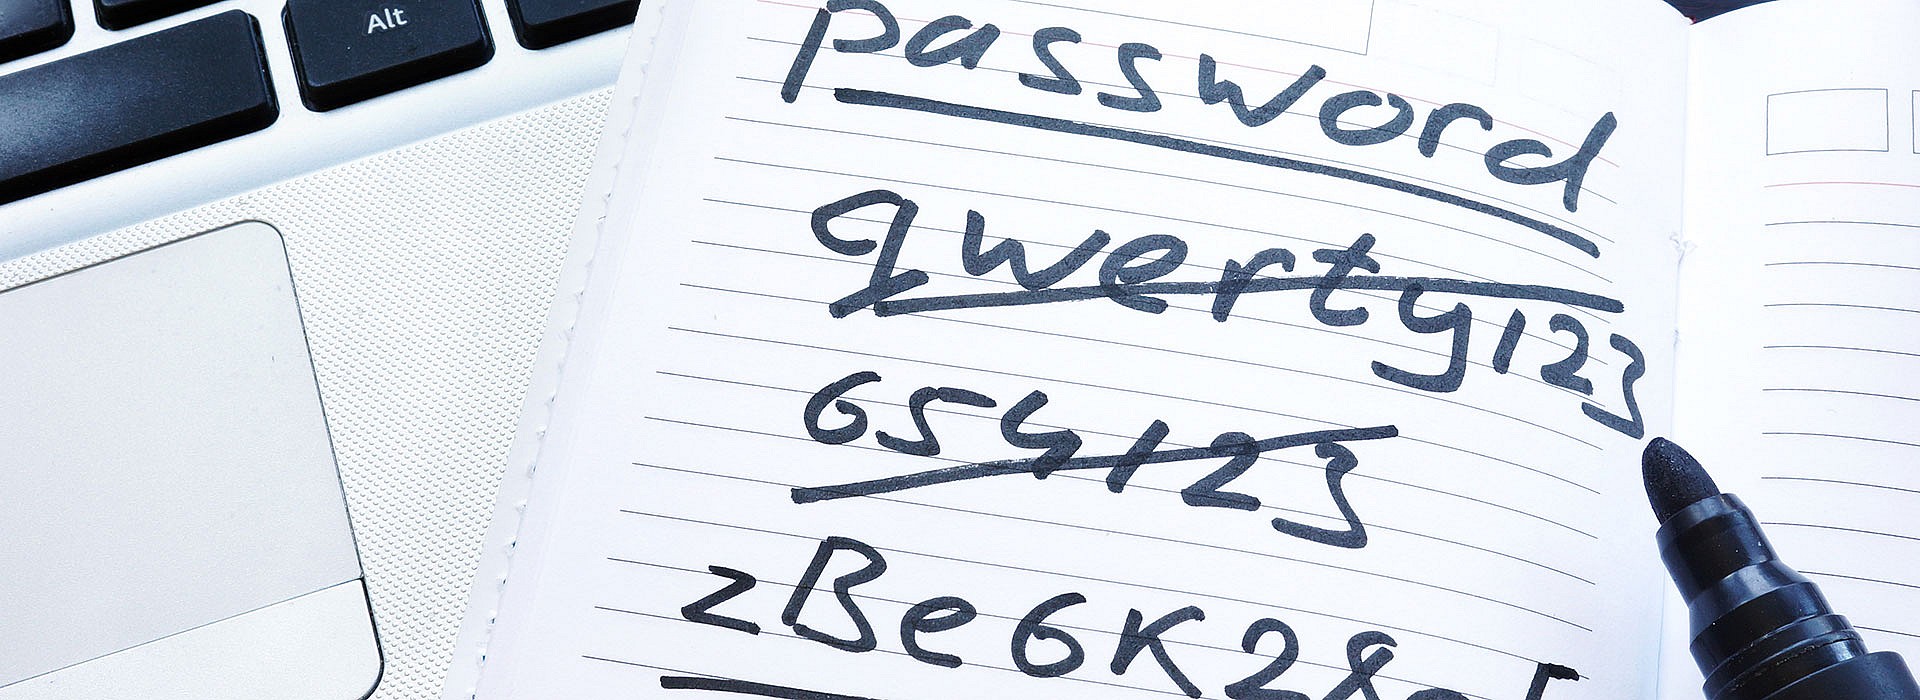 Alt
password
qwerty123
654123
zBe6K28